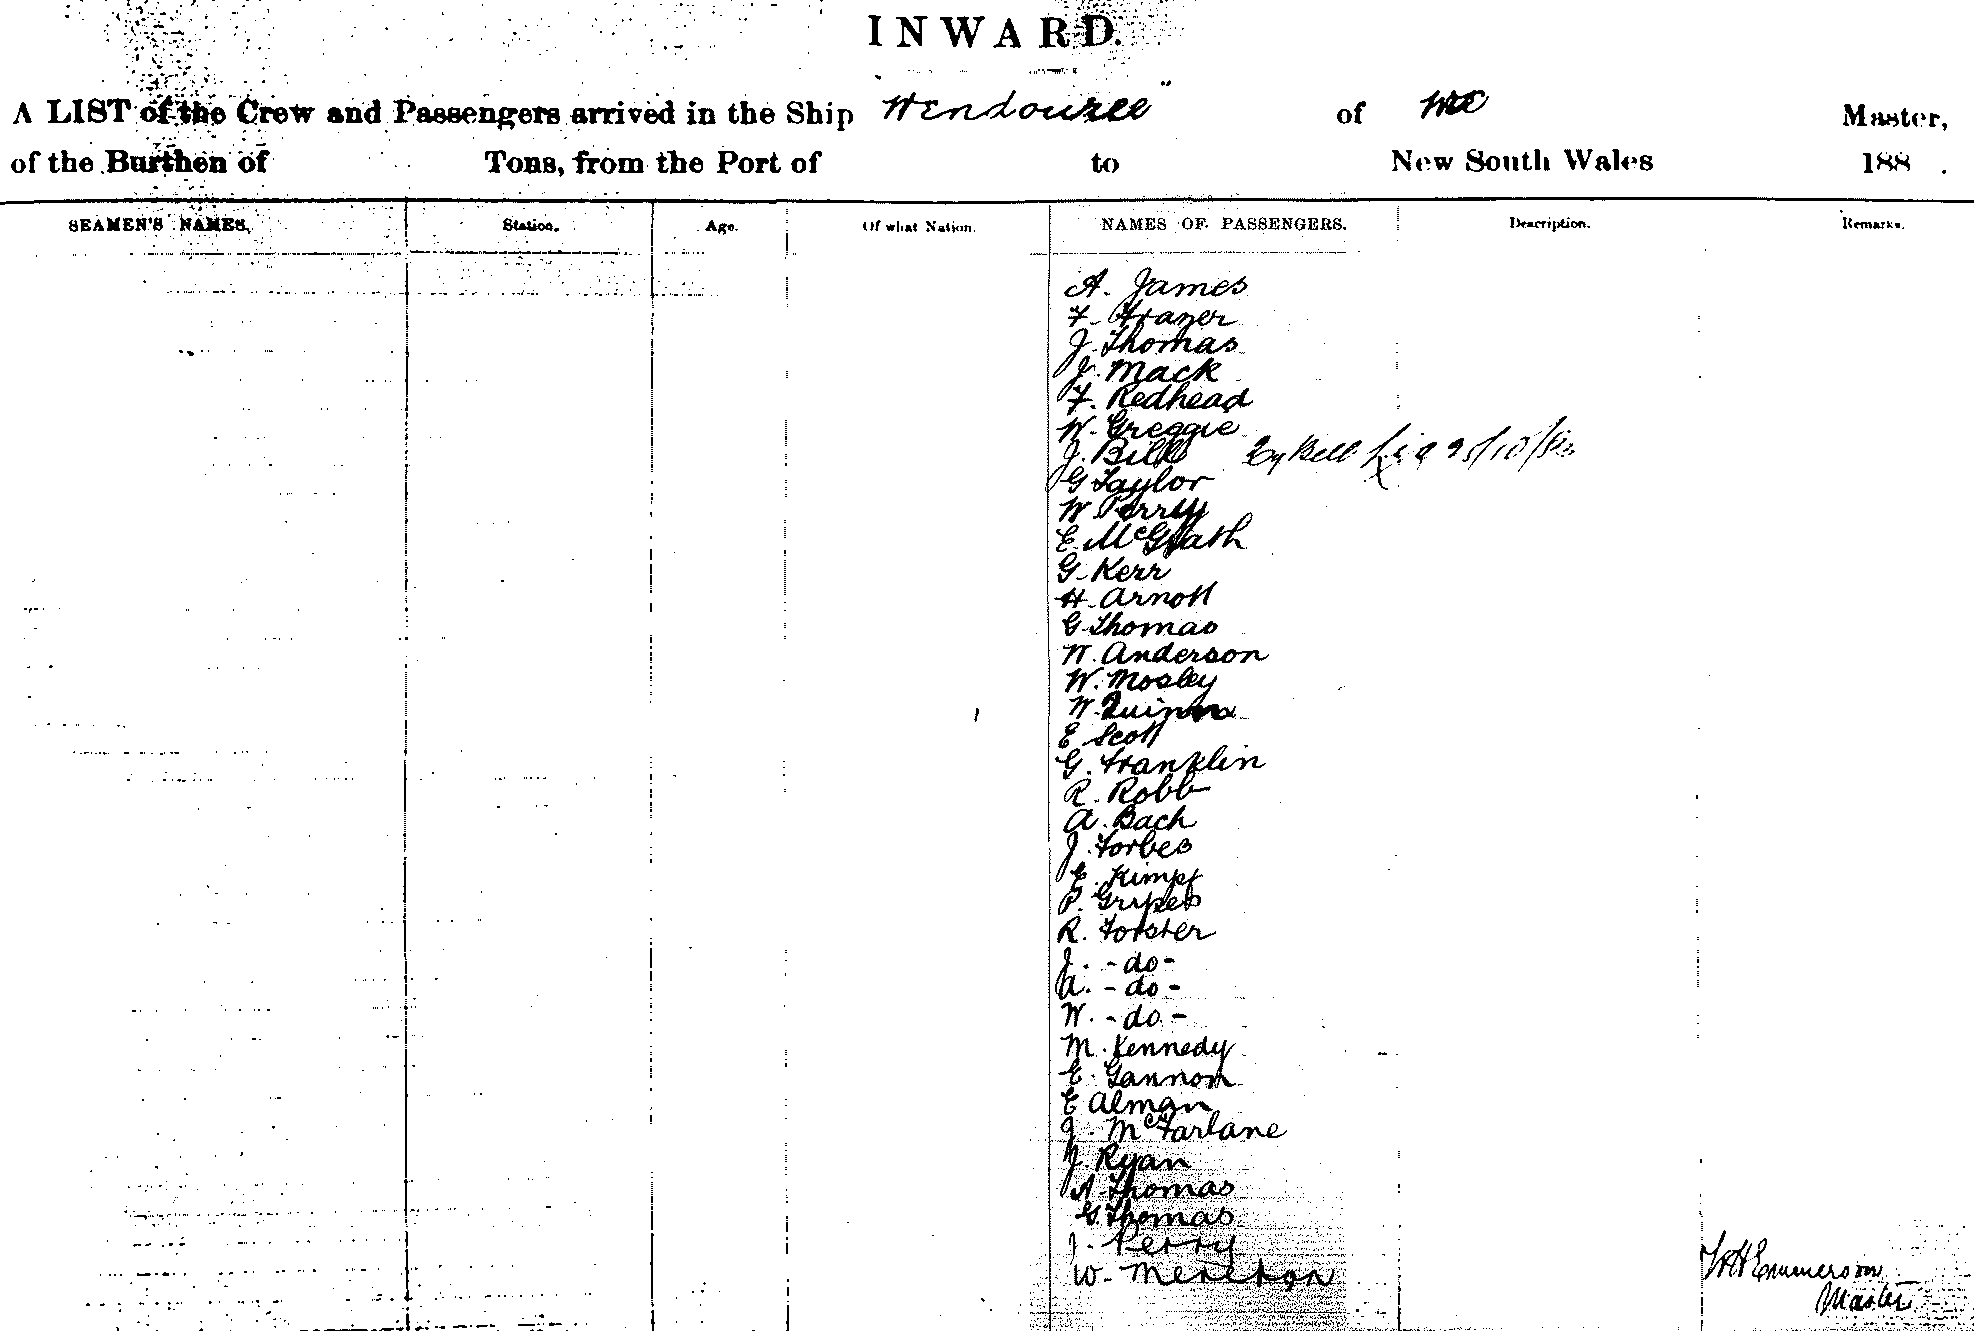 INWARD.
A LIST of the Crew and Passengers arrived in the Ship "Wendouree" of Master,
of the Burthen of Tons, from the Port of to New South Wales 188 .
SEAMEN'S NAMES. Station. Age. Of what Nation. NAMES OF PASSENGERS. Description. Remarks.
A. James
F. Frazer
J. Thomas
J. Mack
F. Redhead
W. Greggie
J. Bill
G Taylor
W Perry
E. McGrath
G. Kerr
H. Arnott
G Thomas
W. Anderson
W. Mosley
W. Quinn
E Scott
G. Franklin
R. Robb
A. Bach
J. Forbes
E. Kimpf
P. Gripes
R. Forster
J. - do -
A. - do -
W. - do -
M. Kennedy
E. Gannon
E Alman
J. McFarlane
J. Ryan
A Thomas
G. Thomas
J. Perry
W.
W H Emmerson
Master